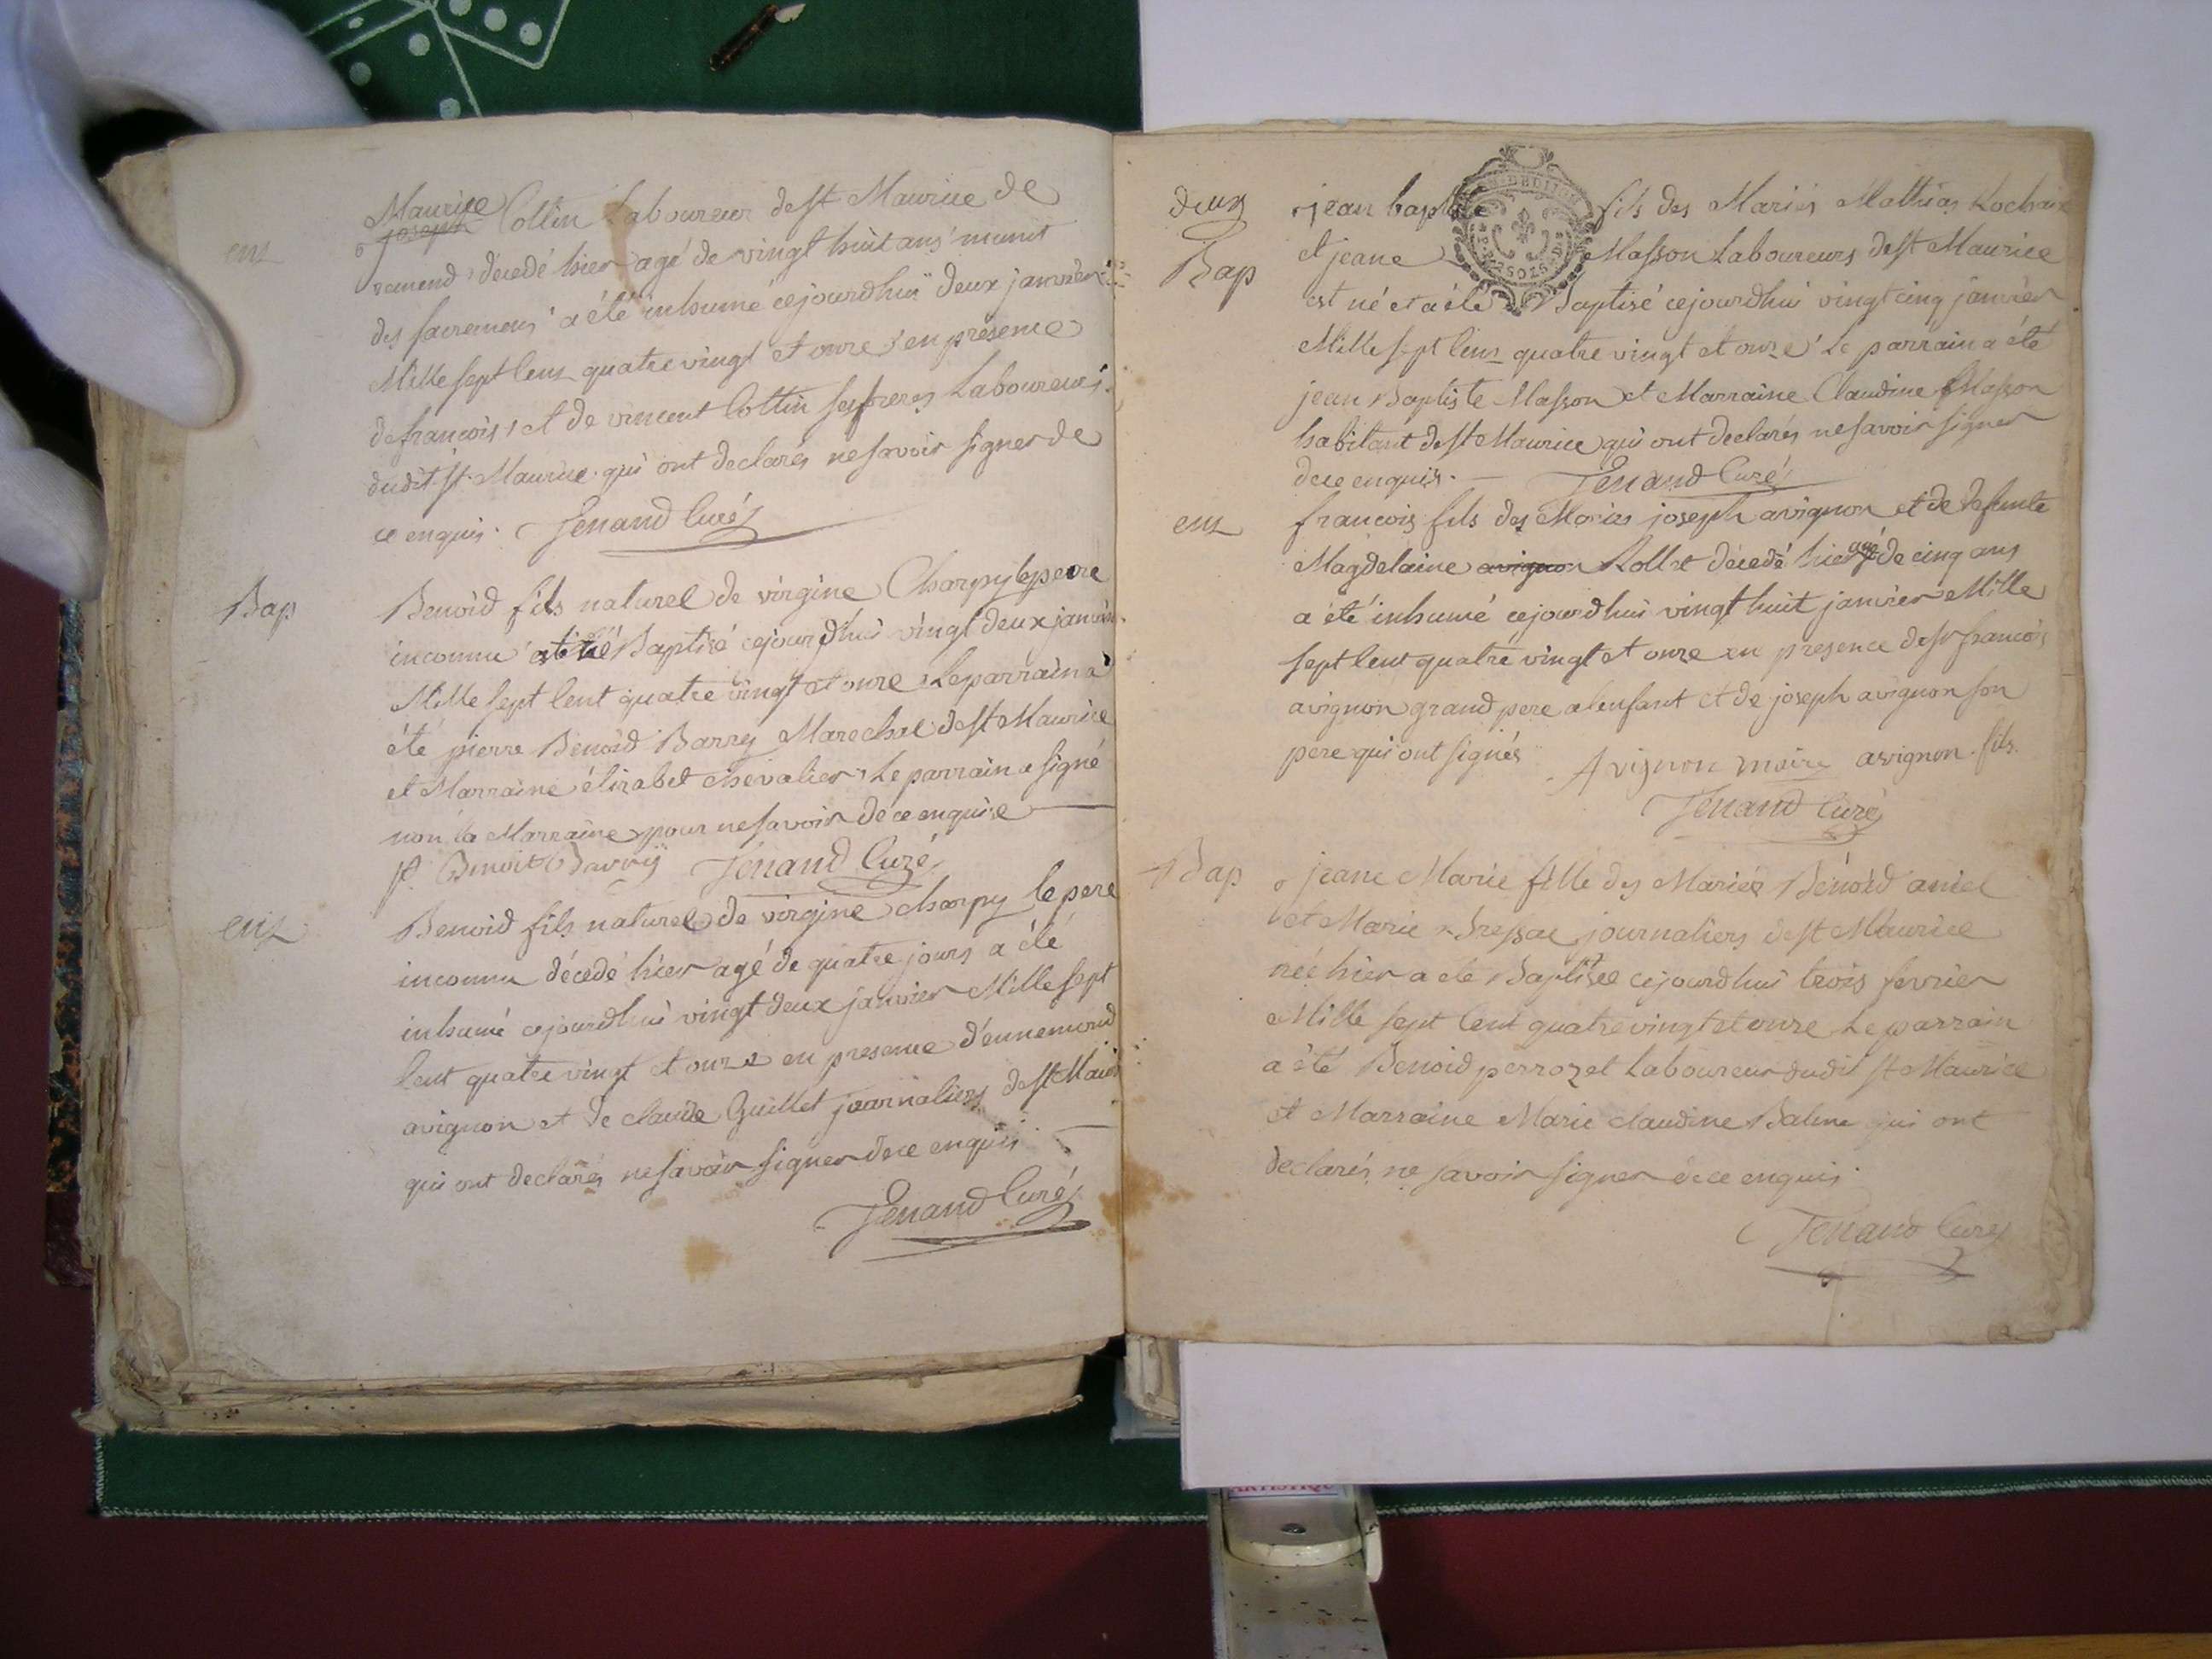 Maurice
joseph Collin Laboureur de st Maurice de
ens
remend décedé hier agé de vingt huit ans munit
des sacremens a été inhumé cejourdhui deux janvier
Mille sept Cens quatre vingt et onze en présence
de francois et de vincent Collin ses freres Laboureurs
dudit st Maurice qui ont declarés ne savoir signer de
ce enquis. Jenand Curé
Bap
Benoid fils naturel de virgine Charpy le pere
inconnu a été Baptisé cejourdhui vingt deux janvier
Mille sept Cent quatre vingt et onze Le parrain a
été pierre Benoid Barry Marechal de st Maurice
et Marraine élizabet chevalier Le parrain a signé
non la Marraine pour ne savoir de ce enquise
p. Benoit Barry Jenand Curé
ens
Benoid fils naturel de virgine charpy le pere
inconnu décedé hier agé de quatre jours a été
inhumé cejourdhui vingt deux janvier Mille sept
Cent quatre vingt et onze en presence d'ennemond
avignon et de claude Guillet journaliers de st Mauri
qui ont declarés ne savoir signer de ce enquis
Jenand Curé
deux
jean baptiste fils des Mariés Mathias Rochaix
Bap
et jeane Masson Laboureurs de st Maurice
est né et a été Baptisé cejourdhui vingt cinq janvier
Mille sept Cens quatre vingt et onze Le parrain a été
jean Baptiste Masson et Marraine Claudine Masson
habitant de st Maurice qui ont declarés ne savoir signer
de ce enquis. Jenand Curé
ens
francois fils des Mariés joseph avignon et de defunte
Magdelaine avignon Rollet décedé hier agé de cinq ans
a été inhumé cejourdhui vingt huit janvier Mille
sept Cent quatre vingt et onze en presence de sr francois
avignon grand pere a lenfant et de joseph avignon son
pere qui ont signés Avignon maire avignon fils.
Jenand Curé
Bap
jeane Marie fille des Mariés Bénoid aniel
et Marie journaliers de st Maurice
née hier a été Baptisée cejourdhui trois fevrier
Mille sept Cent quatre vingt et onze Le parrain
a été Benoid perrozet Laboureur dudit st Maurice
et Marraine Marie claudine Balme qui ont
declarés ne savoir signer de ce enquis
Jenand Curé